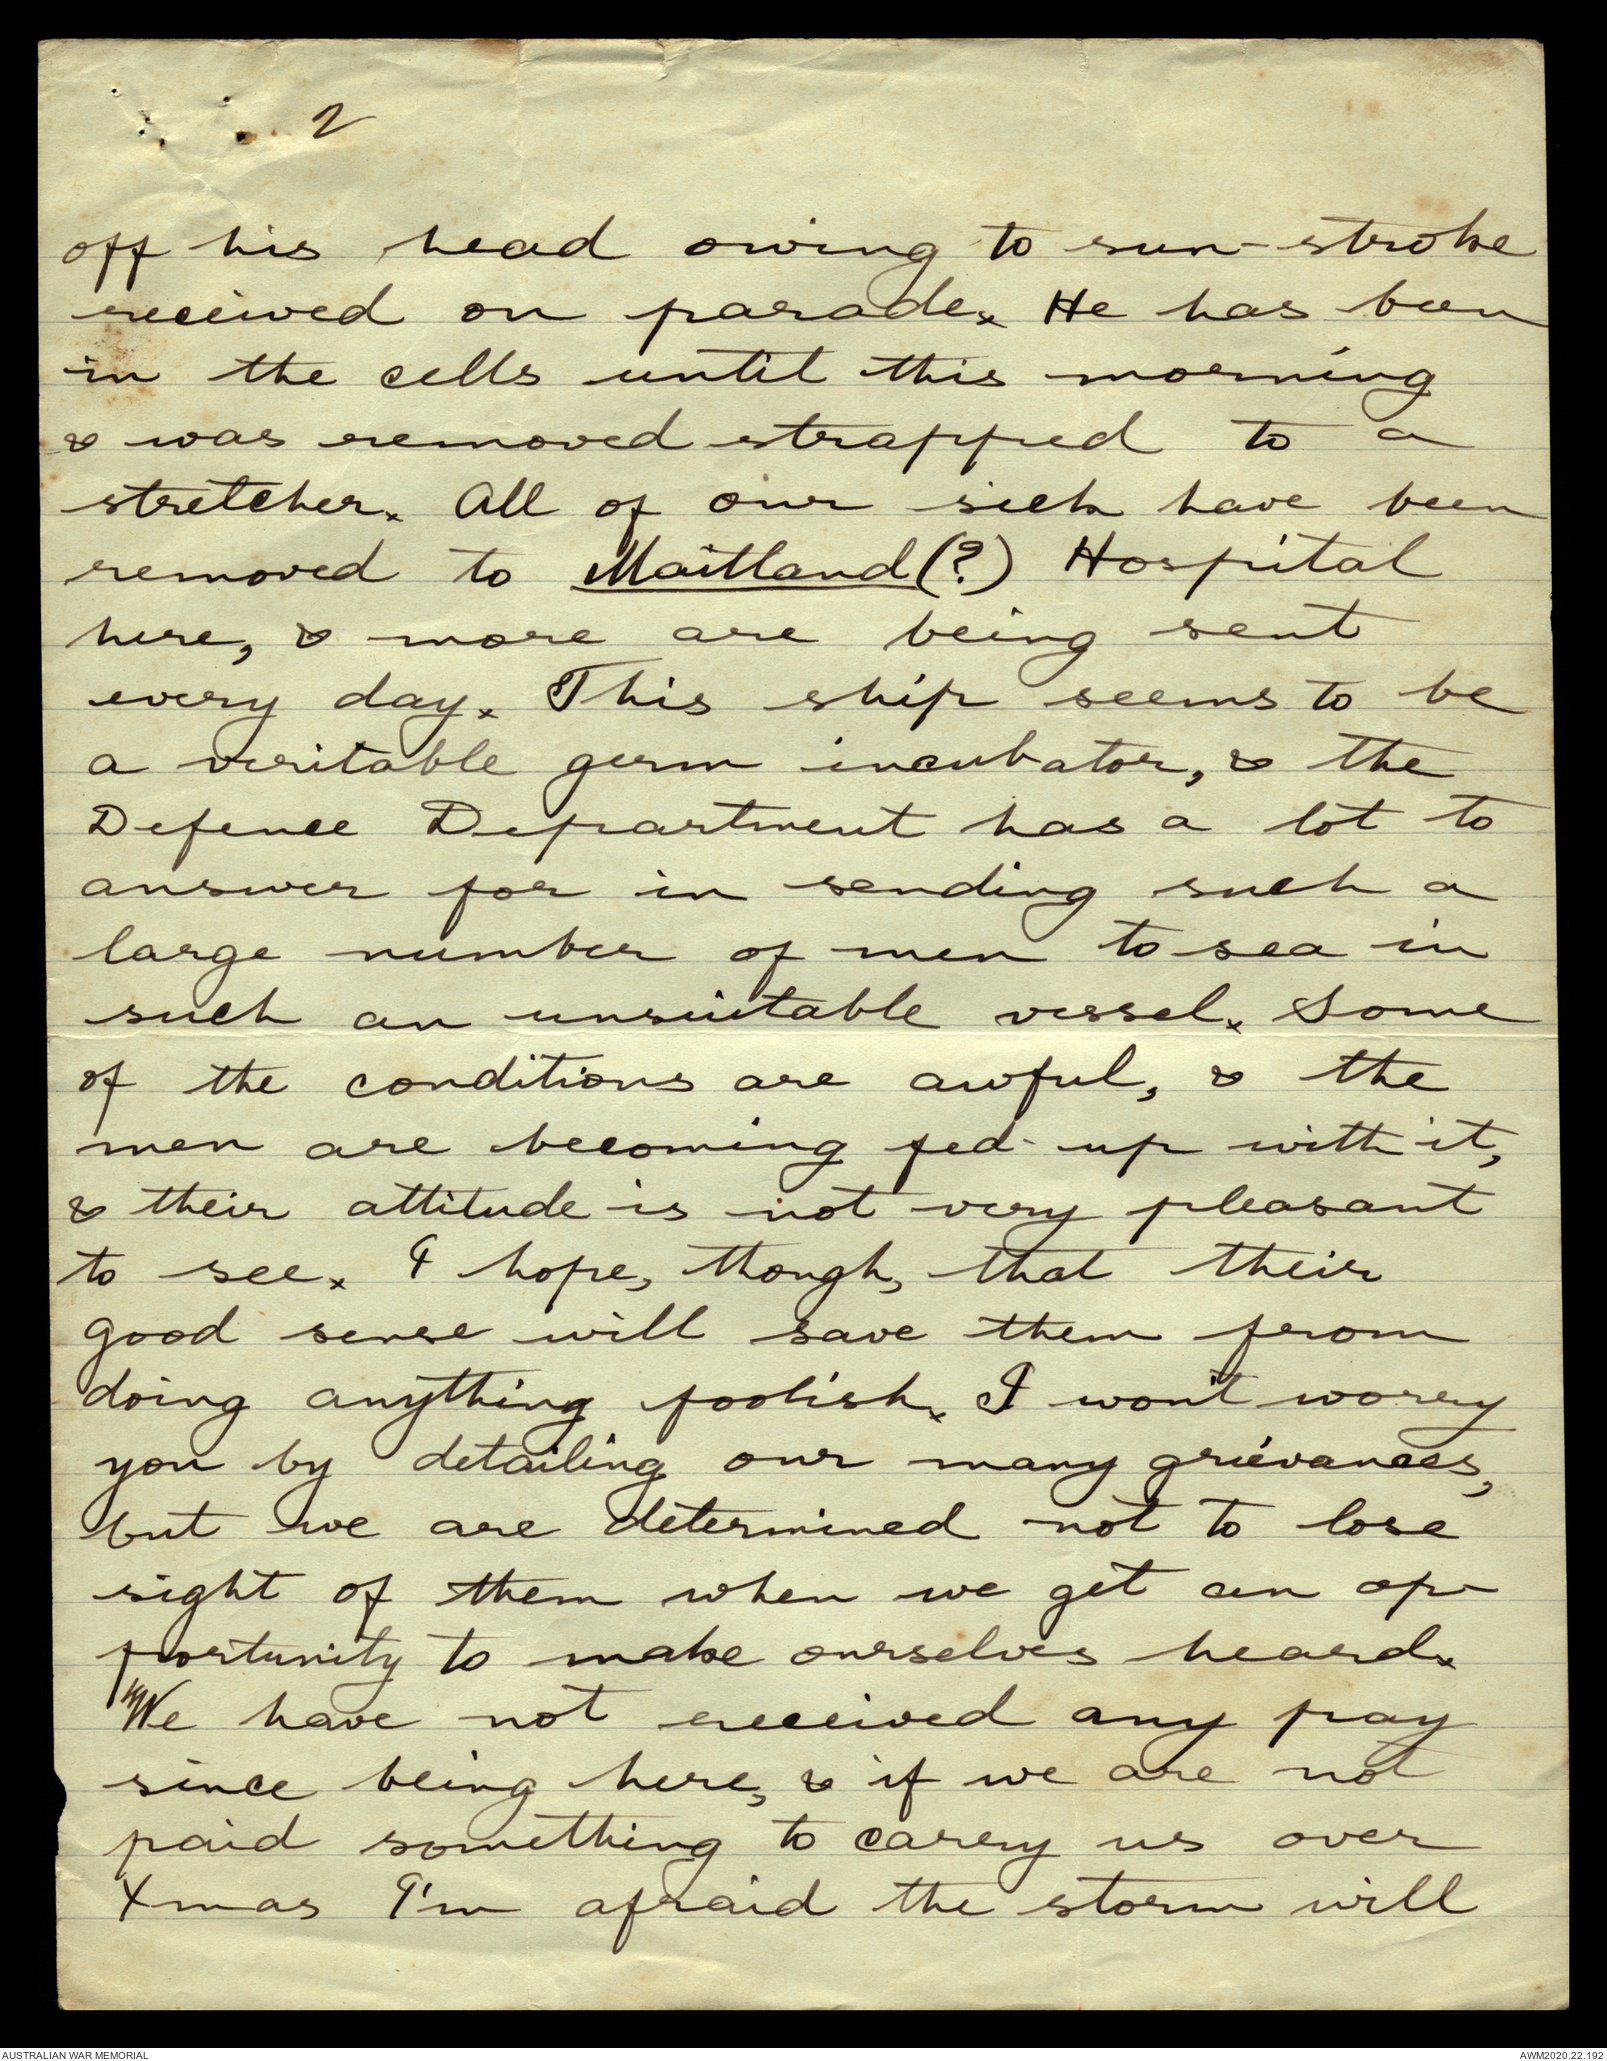 2
off his head owing to sun-stroke
received on parade. He has been
in the cells until this morning
& was removed strapped to a
stretcher. All of our sick have been
removed to Maitland (?) Hospital
here, & more are being sent
every day. This ship seems to be
a veritable germ incubator, & the
Defence Department has a lot to
answer for in sending such a
large number of men to sea in
such an unsuitable vessel. Some
of the conditions are awful, & the
men are becoming fed-up with it,
& their attitude is not very pleasant
to see. I hope, though, that their
good sense will save them from
doing anything foolish. I won't worry
you by detailing our many grievances,
but we are determined not to lose
sight of them when we get an op-
portunity to make ourselves heard.
We have not received any pay
since being here, & if we are not
paid something to carry us over
Xmas I'm afraid the storm will
AUSTRALIAN WAR MEMORIAL
AWM2020.22.192